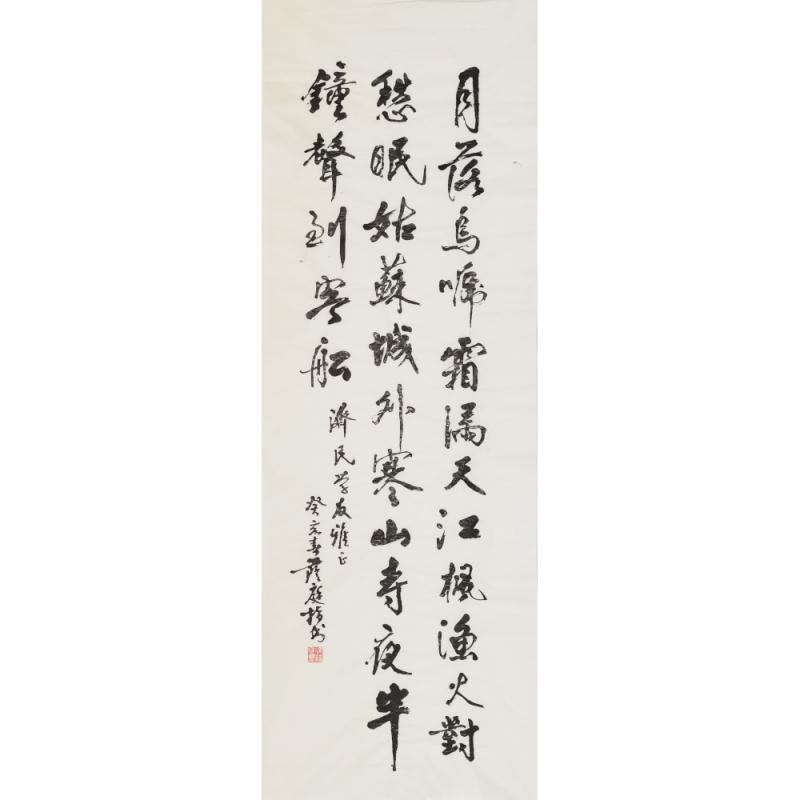 月落烏啼霜滿天江楓漁火對
愁眠姑蘇城外寒山寺夜半
鐘聲到客船
濟民學友雅正
癸亥春薩庭指書